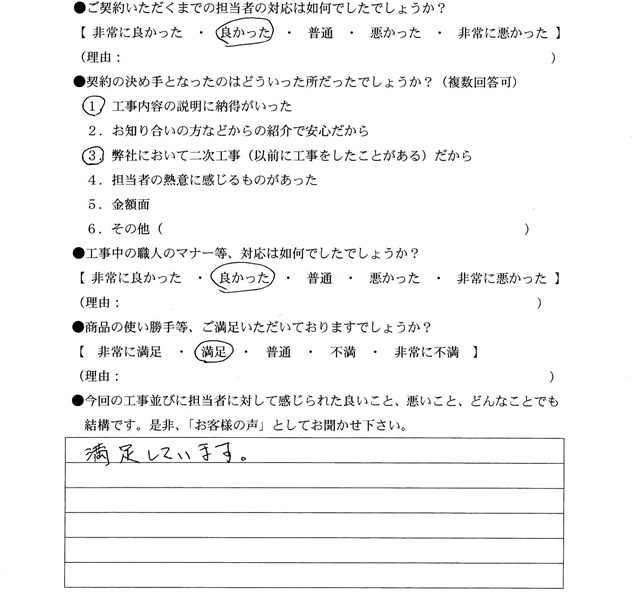 ●ご契約いただくまでの担当者の対応は如何でしたでしょうか？
【 非常に良かった ・ 良かった ・ 普通 ・ 悪かった ・ 非常に悪かった 】
（理由： ）
●契約の決め手となったのはどういった所だったでしょうか？（複数回答可）
１．工事内容の説明に納得がいった
２．お知り合いの方などからの紹介で安心だから
３．弊社において二次工事（以前に工事をしたことがある）だから
４．担当者の熱意に感じるものがあった
５．金額面
６．その他（ ）
●工事中の職人のマナー等、対応は如何でしたでしょうか？
【 非常に良かった ・ 良かった ・ 普通 ・ 悪かった ・ 非常に悪かった 】
（理由： ）
●商品の使い勝手等、ご満足いただいておりますでしょうか？
【 非常に満足 ・ 満足 ・ 普通 ・ 不満 ・ 非常に不満 】
（理由： ）
●今回の工事並びに担当者に対して感じられた良いこと、悪いこと、どんなことでも
結構です。是非、「お客様の声」としてお聞かせ下さい。
満足しています。